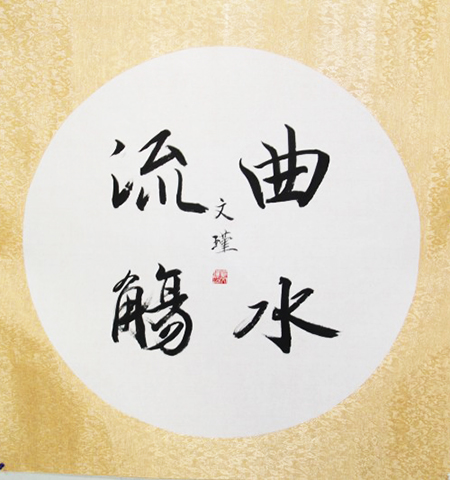 曲水
流觴
文瑾